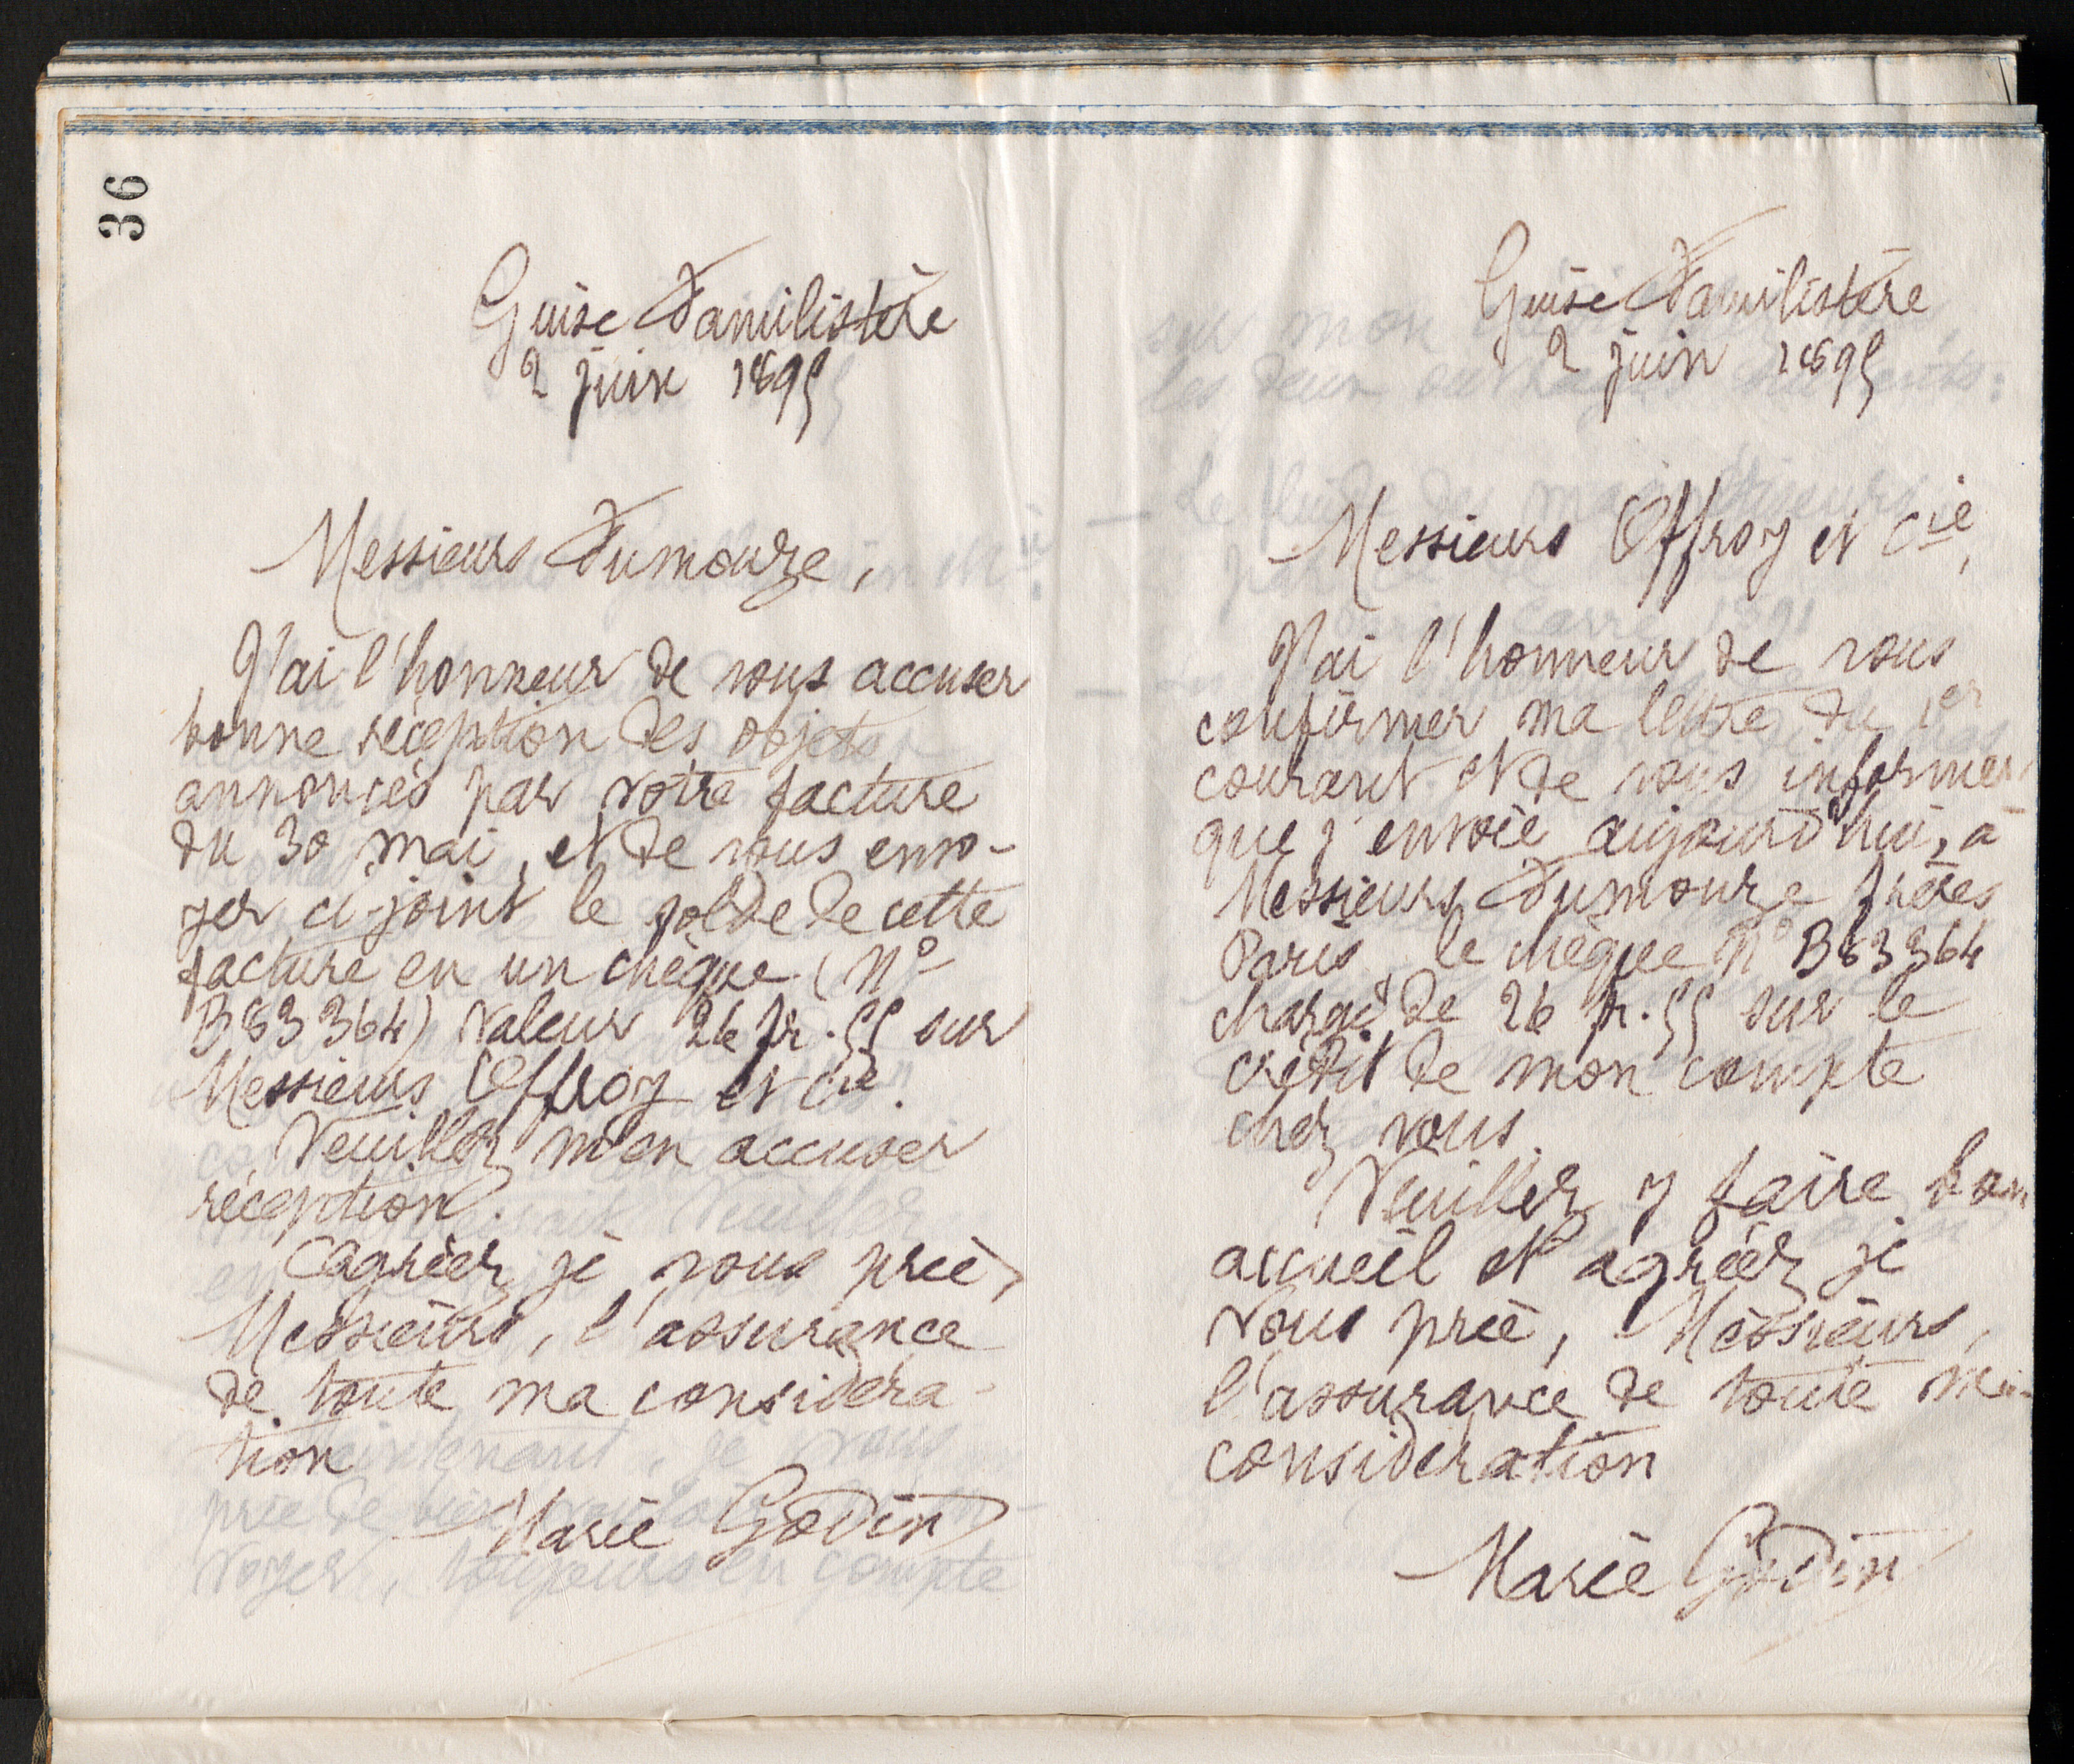 36
Guise Familistère
2 juin 1895
Messieurs Dumouze,
J'ai l'honneur de vous accuser
bonne réception des objets
annoncés par votre facture
du 30 mai, et de vous envo-
yer ci-joint le solde de cette
facture en un chèque (N°
B83364) valeur 26 fr. 55 sur
Messieurs Offroy et Cie.
Veuillez m'en accuser
réception.
Agréez je vous prie,
Messieurs, l'assurance
de toute ma considéra-
tion
Marie Godin
Guise Familistère
2 juin 1895
Messieurs Offroy et Cie,
J'ai l'honneur de vous
confirmer ma lettre du 1er
courant et de vous informer
que j'envoie aujourd'hui, à
Messieurs Dumouze frères
Paris le chèque N° B83364
chargé de 26 fr. 55 sur le
crédit de mon compte
chez vous.
Veuillez y faire bon
accueil et agréez je
vous prie, Messieurs,
l'assurance de toute ma
considération
Marie Godin